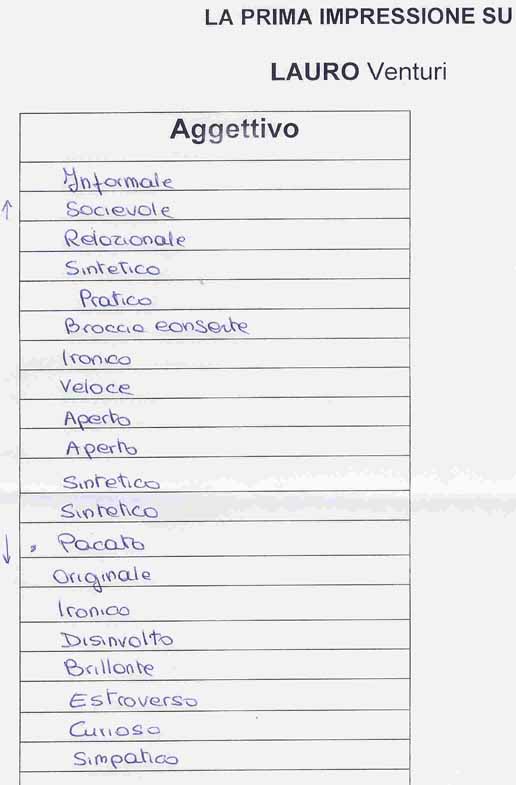 LA PRIMA IMPRESSIONE SU
LAURO Venturi
Aggettivo
Informale
Socievole
Relazionale
Sintetico
Pratico
Braccia conserte
Ironico
Veloce
Aperto
Aperto
Sintetico
Sintetico
Pacato
Originale
Ironico
Disinvolto
Brillante
Estroverso
Curioso
Simpatico